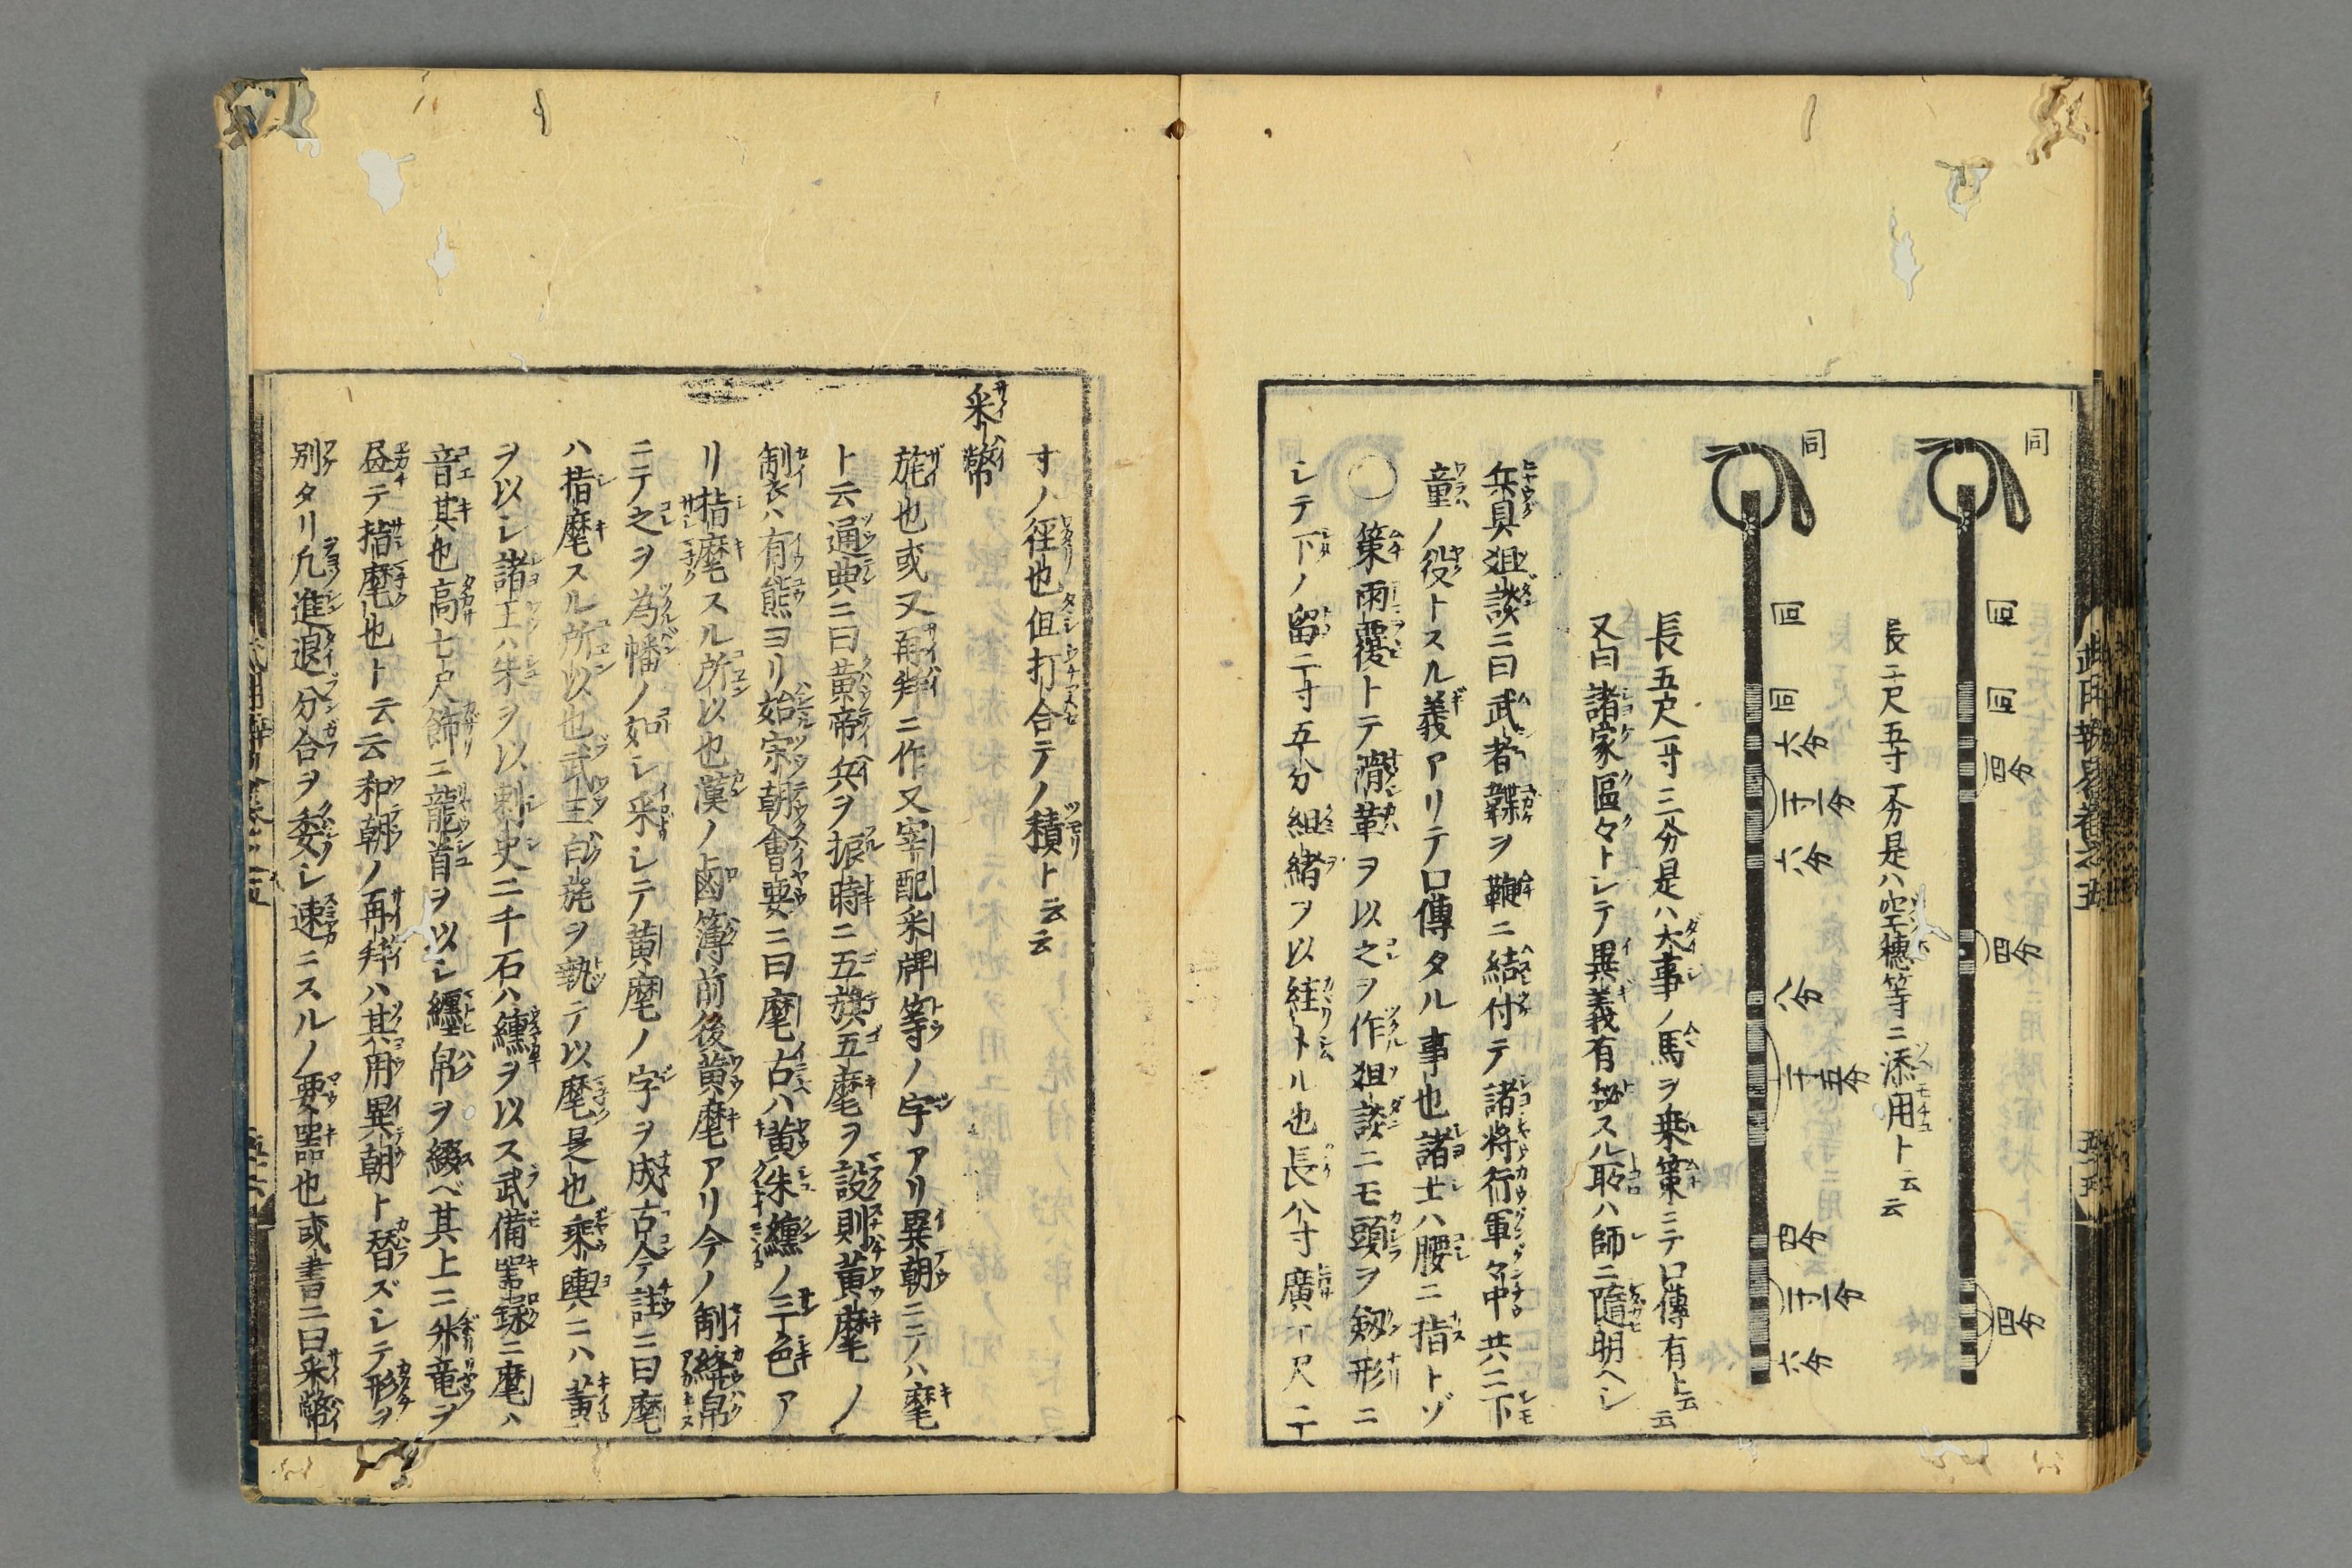 同
回
回
四分
四分
四分
長二尺五寸一分是ハ空穂等ニ添用ト云云
同
回
回
六分
二寸二分
六分
八分
二寸五分
四分
二寸二分
六分
長五尺一寸三分是ハ大事ノ馬ヲ乗策ニテ口傳有ト云云
又曰諸家區々トシテ異義有秘スル所ハ師ニ隨明ヘシ
兵具狙談ニ曰武者韘ヲ鞭ニ結付テ諸将行軍々中共ニ下
童ノ役トスル義アリテ口傳タル事也諸士ハ腰ニ指トゾ
○策雨覆トテ滑革ヲ以之ヲ作狙談ニモ頭ヲ剱形ニ
シテ下ノ留二寸五分組緒ヲ以絓トル也長八寸廣一尺二
寸ノ徑也但打合テノ積ト云云
采幣
旄也或又再拜ニ作又宰配采牌等ノ字アリ異朝ニテハ麾
ト云通典ニ曰黄帝兵ヲ振時ニ五旗五麾ヲ設則黄麾ノ
制衣ハ有熊ヨリ始宗朝會要ニ曰麾古ハ黄朱纁ノ三色ア
リ指麾スル所以也漢ノ鹵簿前後黄麾アリ今ノ制絳帛
ニテ之ヲ為幡ノ如シ采シテ黄麾ノ字ヲ成古今註ニ曰麾
ハ指麾スル所以也武王白旄ヲ執テ以麾是也乗輿ニハ黄
ヲ以シ諸王ハ朱ヲ以刺史二千石ハ纁ヲ以ス武備器録ニ麾ハ
音其也高七尺飾ニ龍首ヲ以シ纏帛ヲ綴ベ其上ニ
テ指麾也ト云云和朝ノ再拜ハ其用異朝ト替ズシテ形ヲ
別タリ凡進退分合ヲ委シ速ニスルノ要器也或書ニ曰采幣